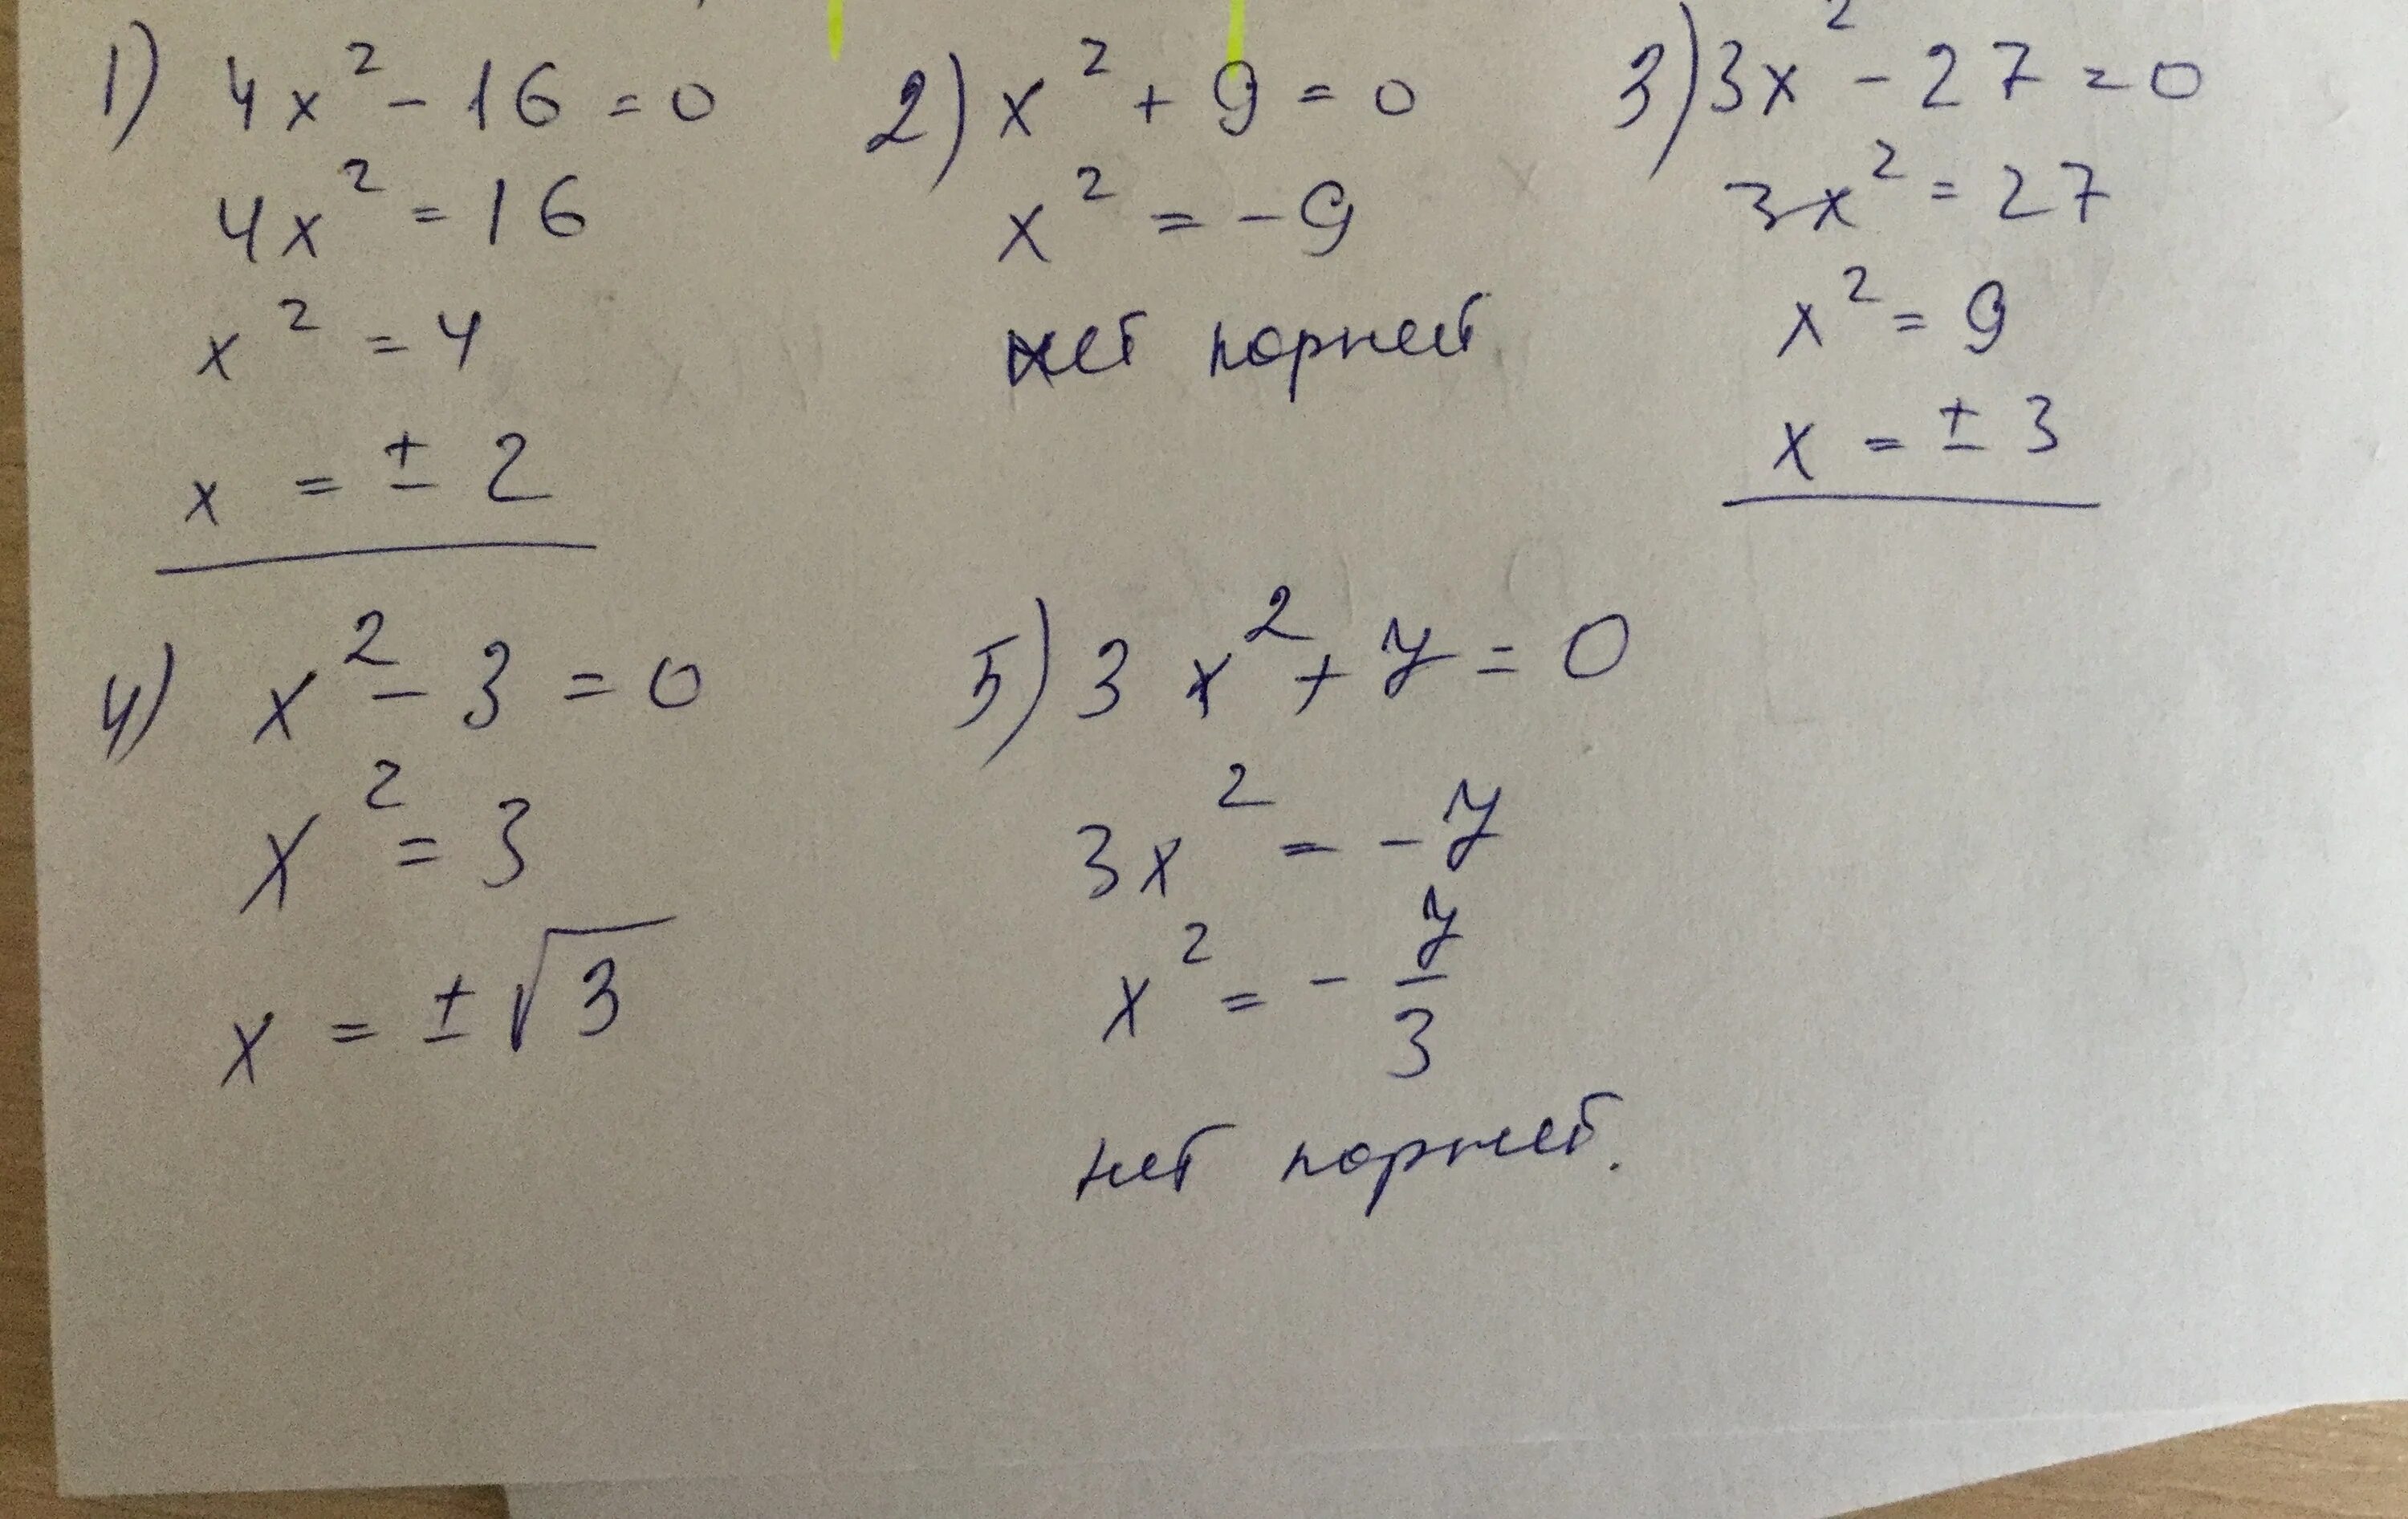 1) 4x² - 16 = 0
4x² = 16
x² = 4
x = ± 2
2) x² + 9 = 0
x² = -9
нет корней
3) 3x² - 27 = 0
3x² = 27
x² = 9
x = ± 3
4) x² - 3 = 0
x² = 3
x = ± √3
5) 3x² + 7 = 0
3x² = -7
x² = - 7/3
нет корней.